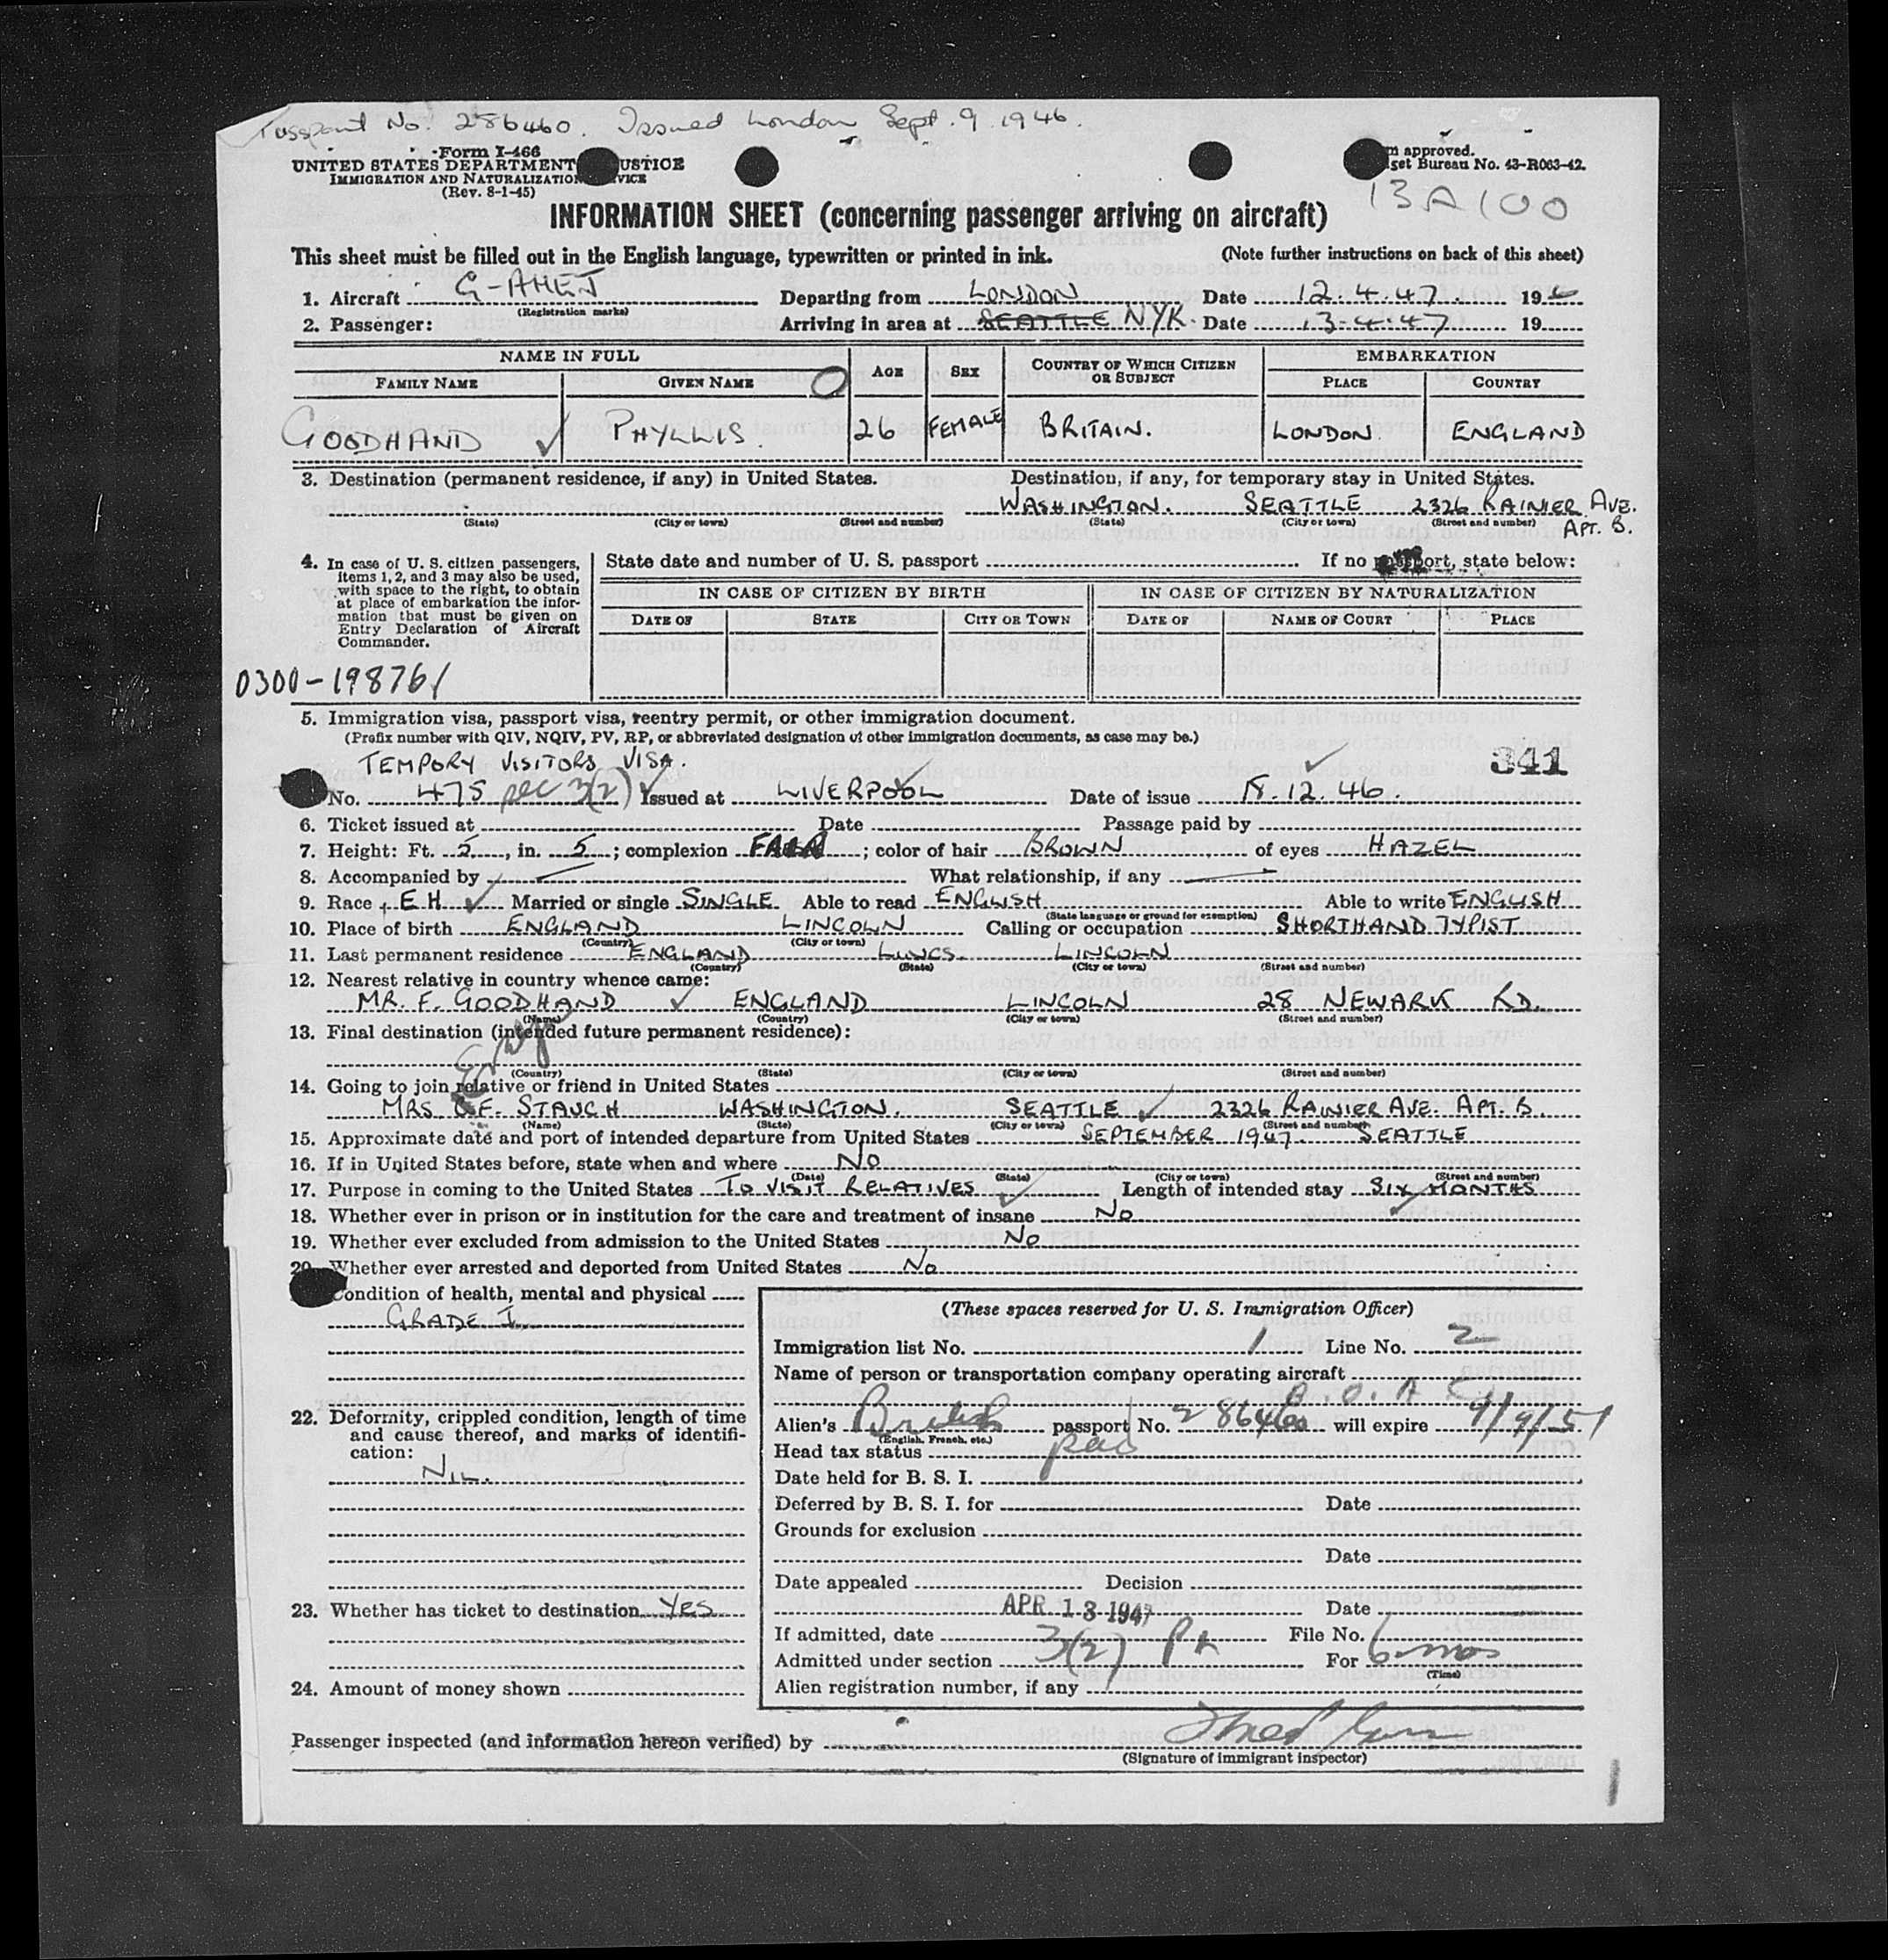 Passport No. 286460. Issued London Sept. 9. 1946.
Form I-466
UNITED STATES DEPARTMENT USTICE
IMMIGRATION AND NATURALIZATION VICE
(Rev. 8-1-45)
m approved.
get Bureau No. 43-R063-42.
13A100
INFORMATION SHEET (concerning passenger arriving on aircraft)
This sheet must be filled out in the English language, typewritten or printed in ink. (Note further instructions on back of this sheet)
1. Aircraft G-AHEJ Departing from LONDON Date 12.4.47. 19
(Registration marks)
2. Passenger: Arriving in area at SEATTLE NYK. Date 13-4-47 19
NAME IN FULL AGE SEX COUNTRY OF WHICH CITIZEN OR SUBJECT EMBARKATION
FAMILY NAME GIVEN NAME PLACE COUNTRY
GOODHAND ✓ PHYLLIS. 26 FEMALE BRITAIN. LONDON. ENGLAND
3. Destination (permanent residence, if any) in United States. Destination, if any, for temporary stay in United States.
WASHINGTON. SEATTLE 2326 RAINIER AVE.
(State) (City or town) (Street and number) (State) (City or town) (Street and number) APT. B.
4. In case of U. S. citizen passengers, items 1, 2, and 3 may also be used, with space to the right, to obtain at place of embarkation the information that must be given on Entry Declaration of Aircraft Commander.
State date and number of U. S. passport If no passport, state below:
IN CASE OF CITIZEN BY BIRTH IN CASE OF CITIZEN BY NATURALIZATION
DATE OF STATE CITY OR TOWN DATE OF NAME OF COURT PLACE
0300-198761
5. Immigration visa, passport visa, reentry permit, or other immigration document.
(Prefix number with QIV, NQIV, PV, RP, or abbreviated designation of other immigration documents, as case may be.)
TEMPORY VISITORS VISA. 341
No. 475 sec 3(2) Issued at LIVERPOOL Date of issue 18.12.46.
6. Ticket issued at Date Passage paid by
7. Height: Ft. 5, in. 5; complexion FAIR; color of hair BROWN of eyes HAZEL
8. Accompanied by What relationship, if any
9. Race EH ✓ Married or single SINGLE Able to read ENGLISH Able to write ENGLISH
(State language or ground for exemption)
10. Place of birth ENGLAND LINCOLN Calling or occupation SHORTHAND TYPIST
(Country) (City or town)
11. Last permanent residence ENGLAND LINCS. LINCOLN
(Country) (State) (City or town) (Street and number)
12. Nearest relative in country whence came:
MR. F. GOODHAND ✓ ENGLAND LINCOLN 28 NEWARK RD.
(Name) (Country) (City or town) (Street and number)
13. Final destination (intended future permanent residence):
Eng
(Country) (State) (City or town) (Street and number)
14. Going to join relative or friend in United States
MRS. E. STAUCH WASHINGTON. SEATTLE ✓ 2326 RAINIER AVE. APT. B.
(Name) (State) (City or town) (Street and number)
15. Approximate date and port of intended departure from United States SEPTEMBER 1947. SEATTLE
16. If in United States before, state when and where NO
(Date) (State) (City or town) (Street and number)
17. Purpose in coming to the United States TO VISIT RELATIVES Length of intended stay SIX MONTHS
18. Whether ever in prison or in institution for the care and treatment of insane NO
19. Whether ever excluded from admission to the United States NO
20. Whether ever arrested and deported from United States NO
ondition of health, mental and physical
GRADE I
22. Deformity, crippled condition, length of time and cause thereof, and marks of identification:
NIL.
23. Whether has ticket to destination YES
24. Amount of money shown
(These spaces reserved for U. S. Immigration Officer)
Immigration list No. 1 Line No. 2
Name of person or transportation company operating aircraft
B. O. A. C.
Alien's British passport No. 286460 will expire 9/9/51
(English, French, etc.)
Head tax status
Date held for B. S. I.
Deferred by B. S. I. for Date
Grounds for exclusion
Date
Date appealed Decision
Date
APR 13 1947
If admitted, date File No.
Admitted under section 3(2) For 6 mos
(Time)
Alien registration number, if any
Passenger inspected (and information hereon verified) by
(Signature of immigrant inspector)